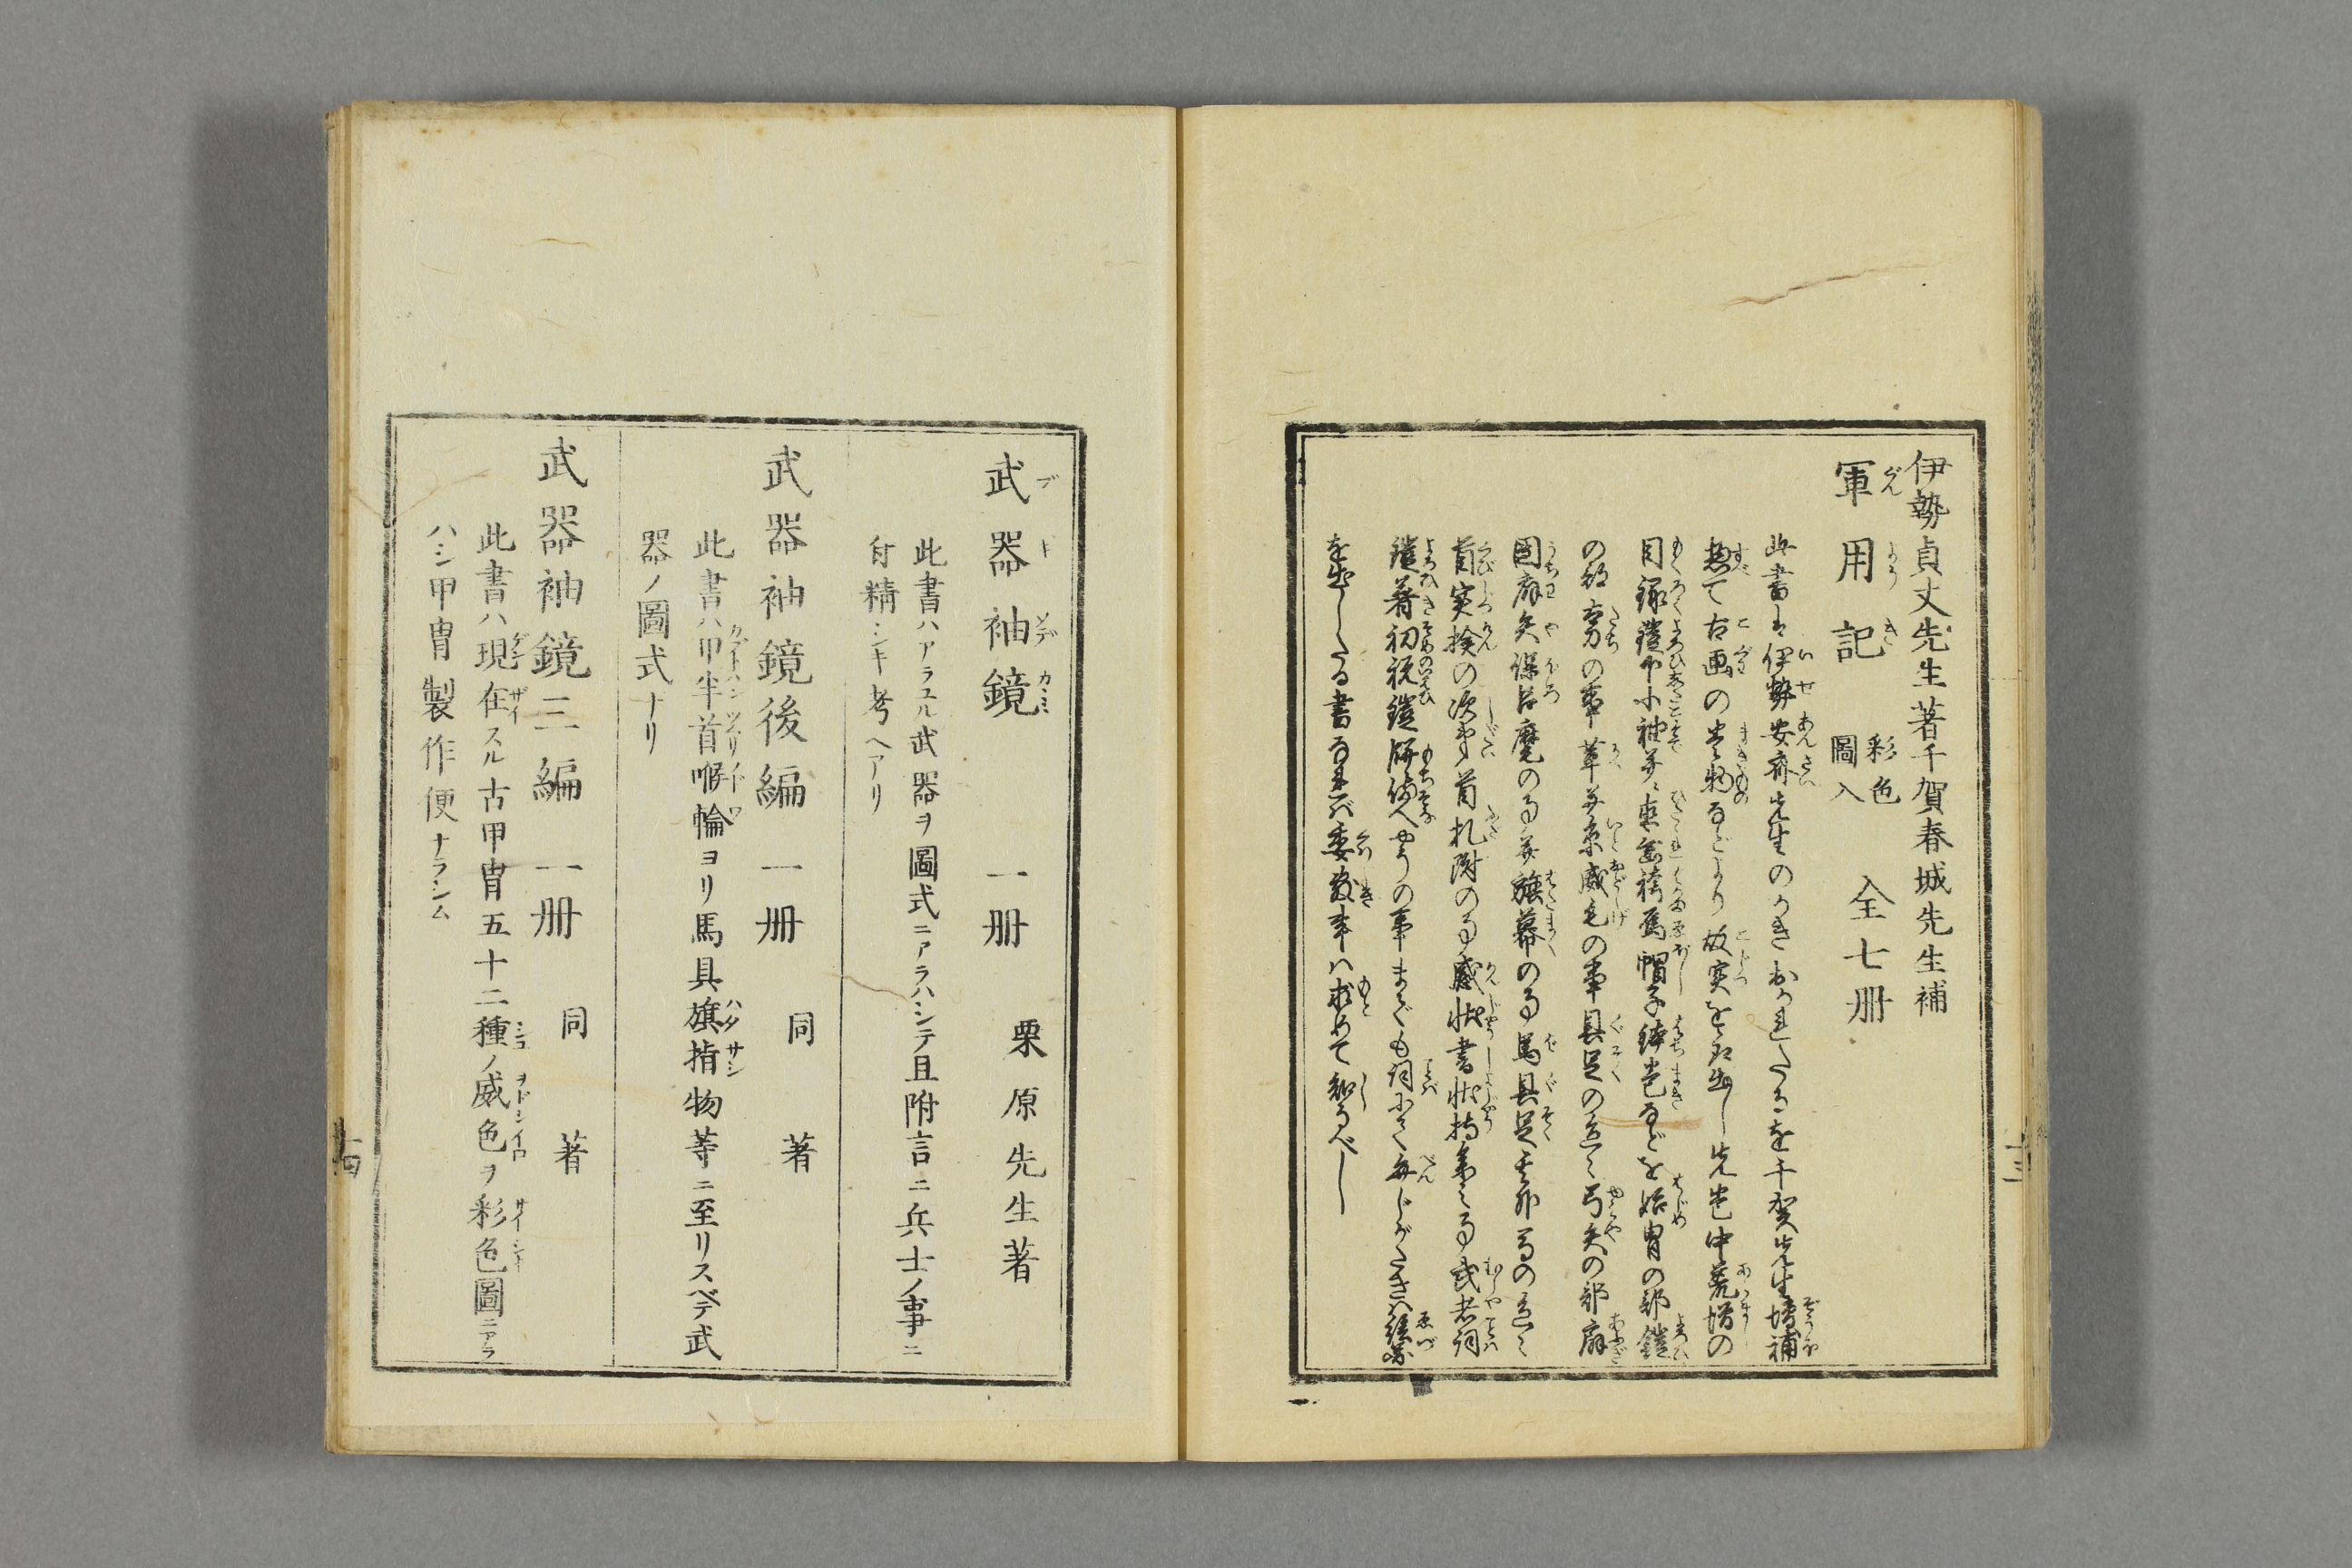 伊勢貞丈先生著千賀春城先生補
軍用記 彩色圖入 全七冊
此書は伊勢安齋先生のかきおかれたるを千賀先生増補
惣て古画の巻物などより故実を考出し先生中荒増の
目録鎧甲小袖并直垂袴烏帽子鉢巻などを始冑の部鎧
の部太刀の事革并糸威毛の事具足の事弓矢の部扇
團扇矢保呂麾の事并旗幕の事馬具足
首実検の次第首札附の事感状書状持参の事武者詞
鎧着初祝鎧餅備へやうの事まても詞にて弁じがたきハ繪圖
を出したる書なれバ委敷事ハ求めて知るべし
十三
武器袖鏡 一冊 栗原先生著
此書ハアラユル武器ヲ圖式ニアラハシテ且附言ニ兵士ノ事ニ
付精シキ考ヘアリ
武器袖鏡後編 一冊 同 著
此書ハ甲半首喉輪ヨリ馬具旗指物等ニ至リスベテ武
器ノ圖式ナリ
武器袖鏡三編 一冊 同 著
此書ハ現在スル古甲冑五十二種ノ威色ヲ彩色圖ニアラ
ハシ甲冑製作便ナラシム
十四